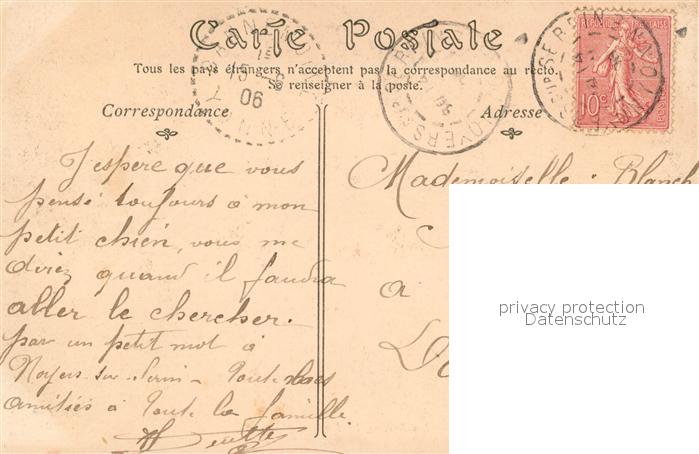 Carte Postale
Tous les pays étrangers n'acceptent pas la correspondance au recto.
Se renseigner à la poste.
Correspondance
Adresse
REPUBLIQUE FRANÇAISE
10c
06
J'espere que vous
pensé toujours a mon
petit chien, vous me
direz quand il faudra
aller le chercher.
par un petit mot a
Noyers sur Serein - Toute
amitiés à Toute la famille
Mademoiselle Blanch
a
privacy protection
Datenschutz